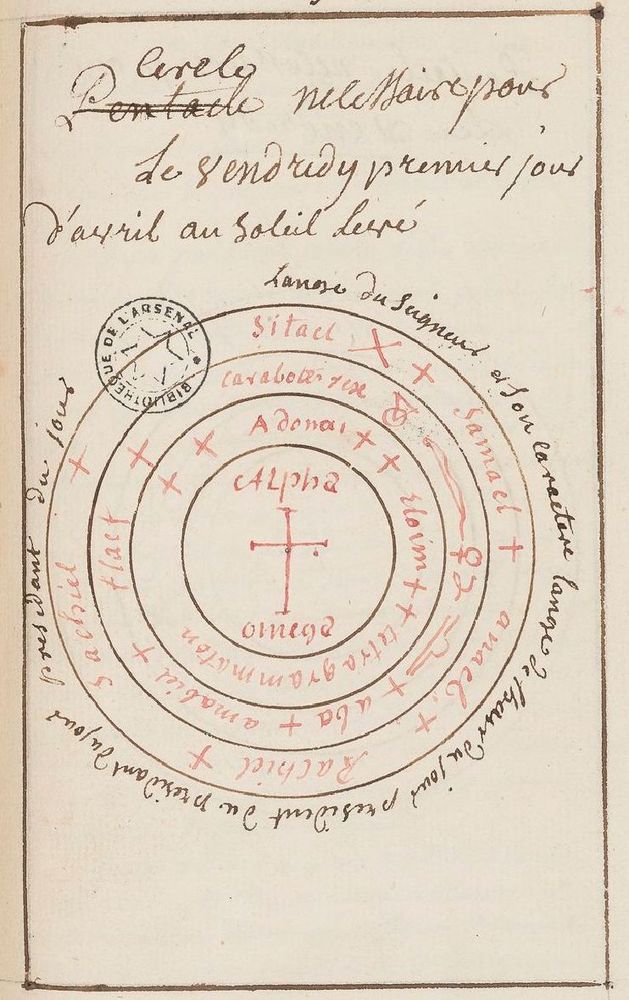 Cercle
Pentacle necessaire pour
Le Vendredy premier jour
d'avril au soleil levé
Lange du Seigneur et Son caractere lange de lheur du jour president du president du jour
president du jour
BIBLIOTHEQUE DE L'ARSENAL
Sitael Samael anael Rachiel Sachiel
Carabotes rex aba amabiel flaef
Adonai Eloim tetragrammaton
ALpha
omega